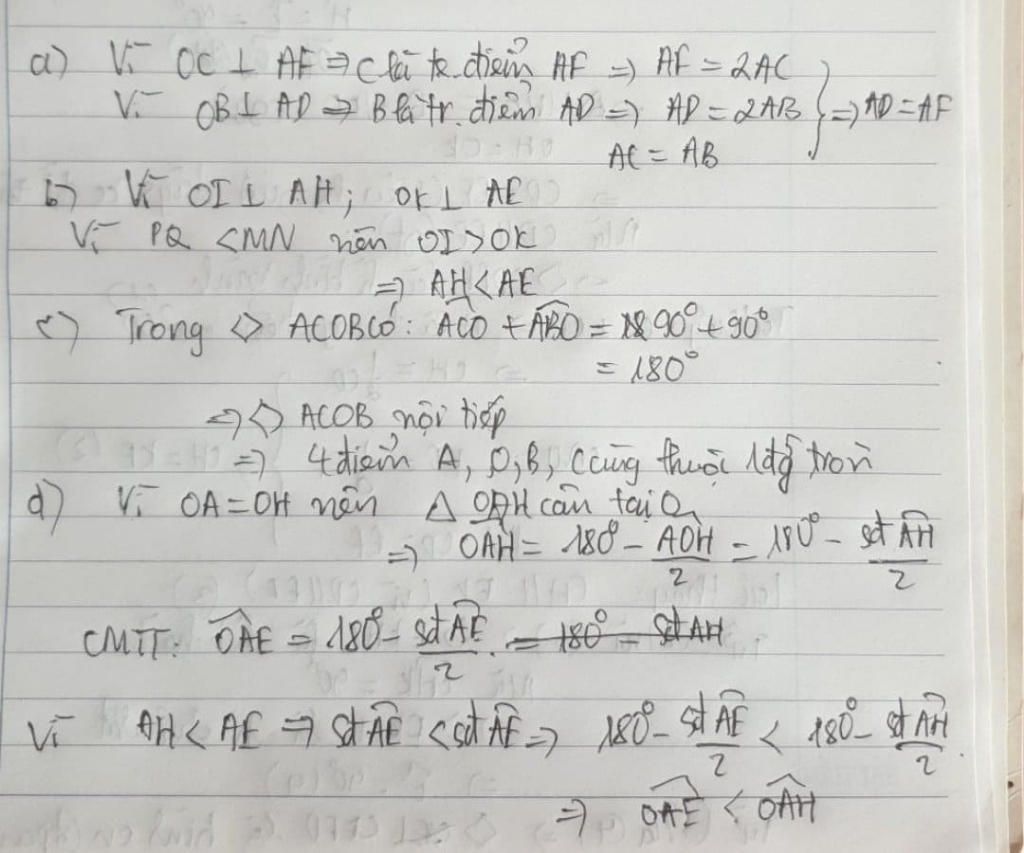 a) Vì OC ⊥ AF ⇒ C là tr. điểm AF ⇒ AF = 2AC
Vì OB ⊥ AD ⇒ B là tr. điểm AD ⇒ AD = 2AB } ⇒ AD = AF
AC = AB
b) Vì OI ⊥ AH; OK ⊥ AE
Vì PQ < MN nên OI > OK
⇒ AH < AE
c) Trong ◇ ACOB có: ACO + ABO = 90° + 90°
= 180°
⇒ ◇ ACOB nội tiếp
⇒ 4 điểm A, O, B, C cùng thuộc 1 đg tròn
d) Vì OA = OH nên △ OAH cân tại O
⇒ OAH = 180° - AOH/2 = 180° - sđ AH/2
CMTT: OAE = 180° - sđ AE/2 = 180° - sđ AH
Vì AH < AE ⇒ sđ AE < sđ AE ⇒ 180° - sđ AE/2 < 180° - sđ AH/2
⇒ OAE < OAH